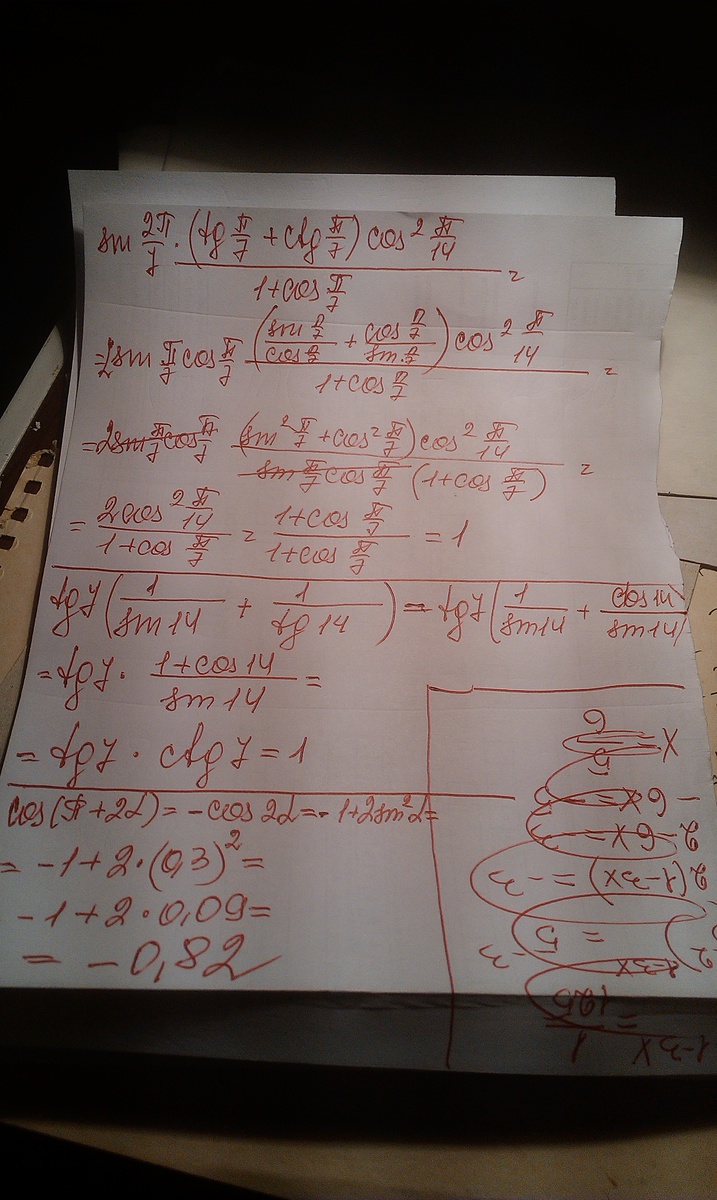 sin 2π/7 · (tg π/7 + ctg π/7) cos² π/14 / 1+cos π/7 =
= 2 sin π/7 cos π/7 (sin π/7 / cos π/7 + cos π/7 / sin π/7) cos² π/14 / 1+cos π/7 =
= 2 sin π/7 cos π/7 (sin² π/7 + cos² π/7) cos² π/14 / sin π/7 cos π/7 (1+cos π/7) =
= 2cos² π/14 / 1+cos π/7 = 1+cos π/7 / 1+cos π/7 = 1
tg7 (1/sin14 + 1/tg14) = tg7 (1/sin14 + cos14/sin14)
= tg7 · 1+cos14 / sin14 =
= tg7 · ctg7 = 1
cos(π+2α) = -cos2α = -1+2sin²α =
= -1+2·(0,3)² =
-1+2·0,09=
= -0,82
1-3x = 1/125
2(1-3x) = -3
2-6x = -3